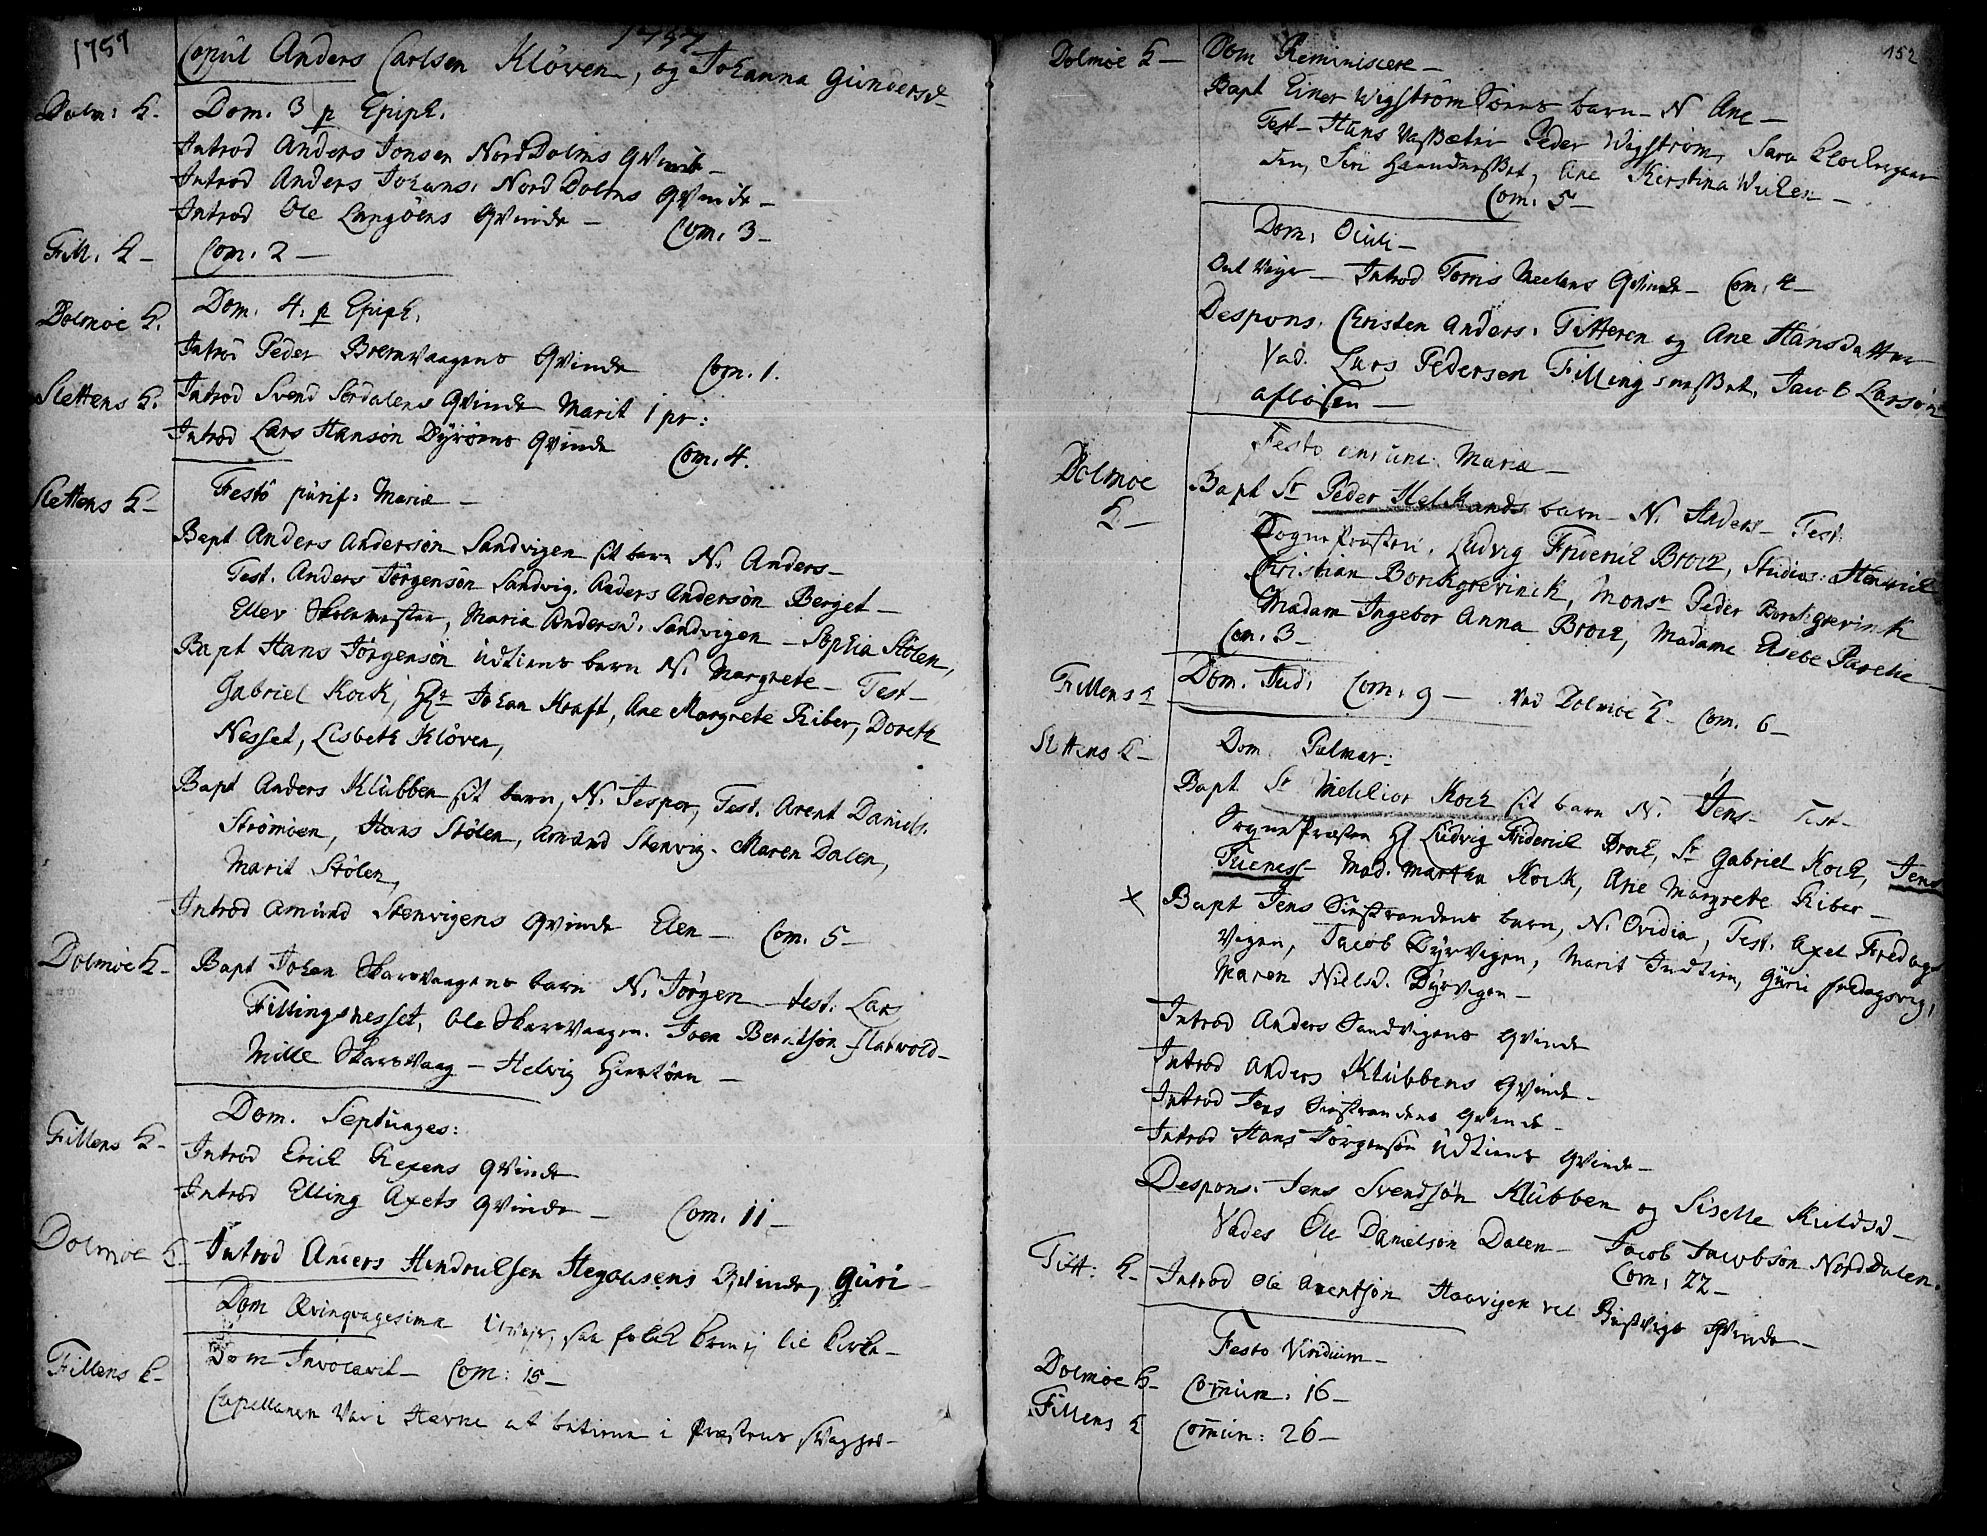 1757
1757
Copul Anders Carlsen Klöven, og Johanna Gundersd
Dolm: K. Dom. 3 p Epiph.
Introd Anders Jonsen NordDolms Qvinde
Introd Anders Johans: NordDolms Qvinde
Introd Ole Langöens Qvinde – Com. 3 –
Fill. K – Com. 2 –
Dolmöe K. Dom. 4. p Epiph.
Introd Peder Bremvaagens Qvinde Com. 1.
Slettens K. Introd Svend Serdalens Qvinde Marit 1 pr:
Introd Lars Hansön Dÿröens Qvinde Com. 4.
Slettens K – Festö purif: Mariæ –
Bapt Anders Andersön Sandvigen sit barn N. Anders –
Test. Anders Jörgensön Sandvig. Anders Andersön Berget –
Ellev Skolemester, Maria Andersd. Sandvigen – Sophia Stölen,
Bapt Hans Jörgensön Üdtiens barn N. Margrete – Test –
Gabriel Kock, Hr Johan Kraft, Ane Margrete Riber, Doreth
Nesset, Lisbeth Klöven,
Bapt Anders Klübben sit barn, N. Jesper, Test. Arent Daniels.
Strömöen, Hans Stölen, Amünd Stenvig. Maren Dalen,
Marit Stölen,
Introd Amünd Stenvigens Qvinde Elen – Com. 5 –
Dolmöe K – Bapt Johan Skarsvaagens barn N. Jörgen – test. Lars
Fillingsnesset, Ole Skarsvaagen. Joen Berntsön Slatvold –
Mille Skarsvaag – Helvig Hiertöen –
Dom. Septuages:
Fillens K – Introd Erich Rexens Qvinde
Introd Elling Axets Qvinde – Com. 11 –
Dolmöe K – Introd Anders Hendrichsen Hegaasens Qvinde, Güri –
Dom Qvinqvagesima Uveyr, saa folck kom ej til kirke –
Fillens K – Dom Invocavit – Com: 15 –
Capellanen var i Hevne at betiene i Præstens svaghed –
152
Dolmöe K – Dom Reminiscere –
Bapt Einer Wigström barn – N Ane –
Test – Hans Peder Wigström, Sara Klockergaar
den, Siri, Ane Kirstina Wichen –
Com. 5 –
Dom. Oculi –
Ont Veyr – Introd Tomis Meelens Qvinde – Com. 4 –
Despons. Christen Anders. Titteren og Ane Hansdatter
Vad. Lars Pedersen Fillingsnesset, Jacob Larsön
aflösen –
Festo Mariæ –
Dolmöe
K. –
Bapt Sr Peder Helkands barn – N. Anders – Test.
Sognepræsten. Ludvig Friderich Broch, Studios: Henrich
Christian Borchgrevinck, Monsr Peder Borchgrevinck
Madam Ingebor Anna Broch, Madame Elsebe Parelie –
Com. 3 –
Fillens K Dom. Jud. Com. 9 – Ved Dolmöe K – Com. 6 –
Slettens K – Dom. Palmar:
Bapt Sr Melchior Koch sit barn N. Jens – Test –
Sognepræsten Hr Ludvig Friderich Broch, Sr Gabriel Koch, Jens
Mad. Martha Kock, Ane Margrete Riber –
× Bapt Jens barn, N. Ovidia, Test. Axel Fredags
vigen, Jacob Dÿrvigen, Marit Indtien, Güri fredagsvig,
Maren Nielsd. Dÿrvigen –
Introd Anders Sandvigens Qvinde
Introd Anders Klübbens Qvinde –
Introd Jens Qvinde –
Introd Hans Jörgensön Üdtiens Qvinde –
Despons. Jens Svendsön Klübben og Siselle –
Vades Ole Danielsön Dalen – Jacob Jacobsön NordDalen.
Com: 22 –
Fill: K – Introd Ole Arentsön Haavigen vel Qvinde –
Festo Viridium –
Dolmöe K – Comun. 16 –
Fillens K Comun: 26 –